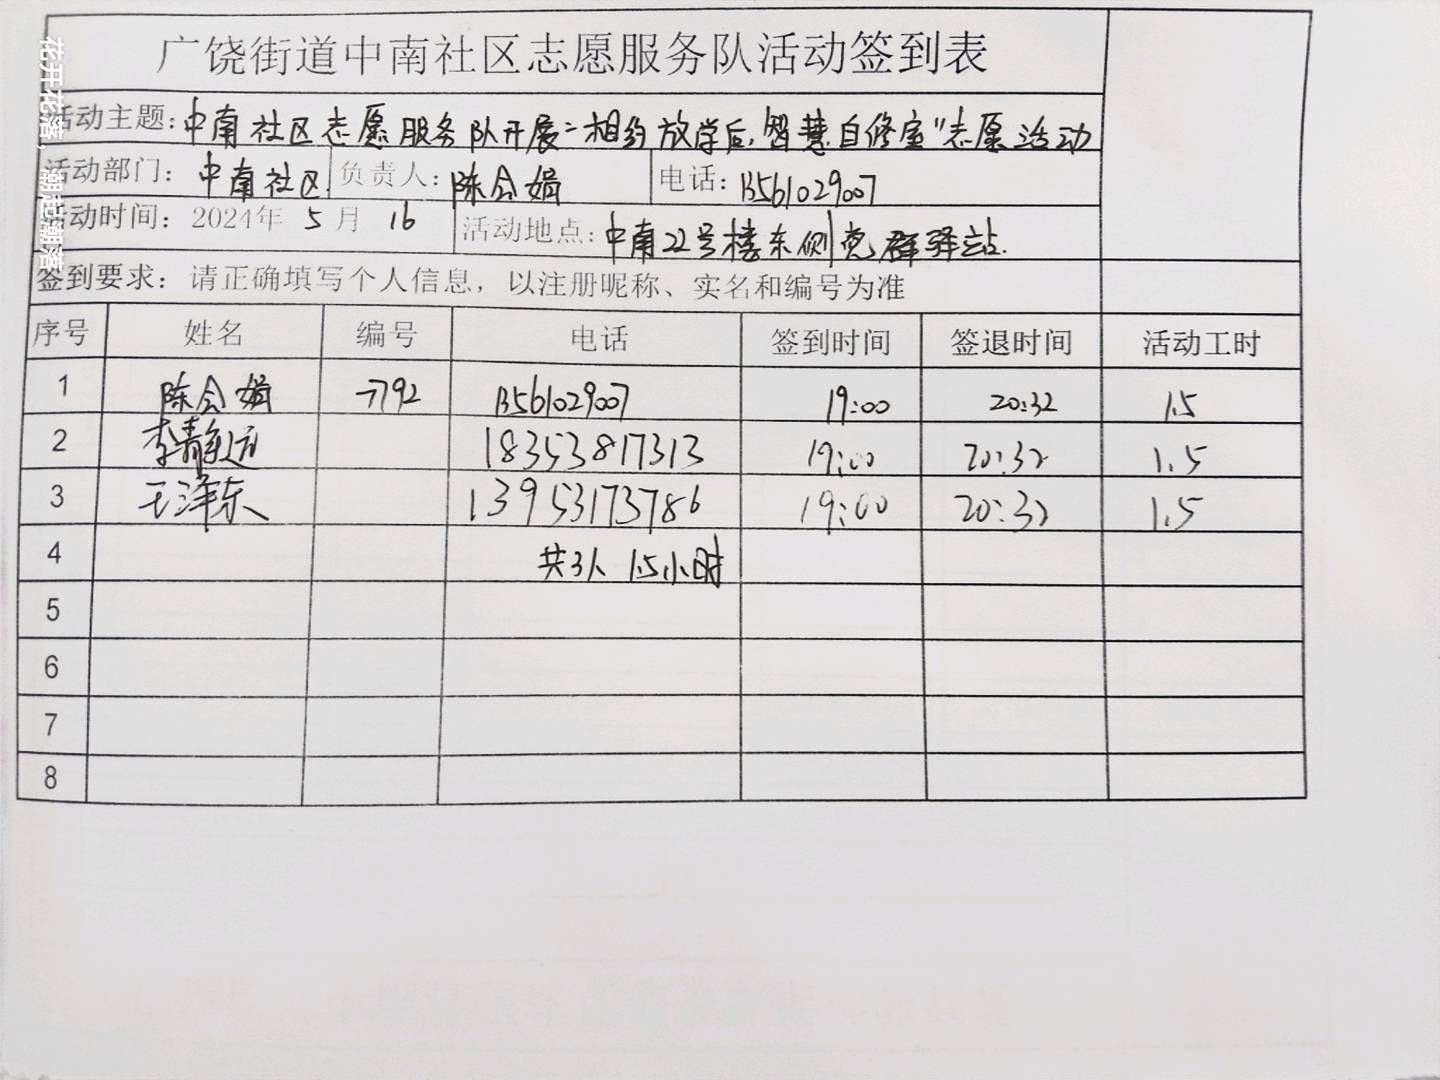 花开花落，潮起潮落
广饶街道中南社区志愿服务队活动签到表
活动主题：中南社区志愿服务队开展“相约放学后，智慧自修室”志愿活动
活动部门：中南社区 负责人：陈会娟 电话：13561029007
活动时间：2024年 5月 16 活动地点：中南22号楼东侧党群驿站
签到要求：请正确填写个人信息，以注册昵称、实名和编号为准
序号 姓名 编号 电话 签到时间 签退时间 活动工时
1 陈会娟 7792 13561029007 19:00 20:32 1.5
2 李静远 18353817313 19:00 20:32 1.5
3 王泽东 13953173786 19:00 20:32 1.5
4 共3人 1.5小时
5
6
7
8